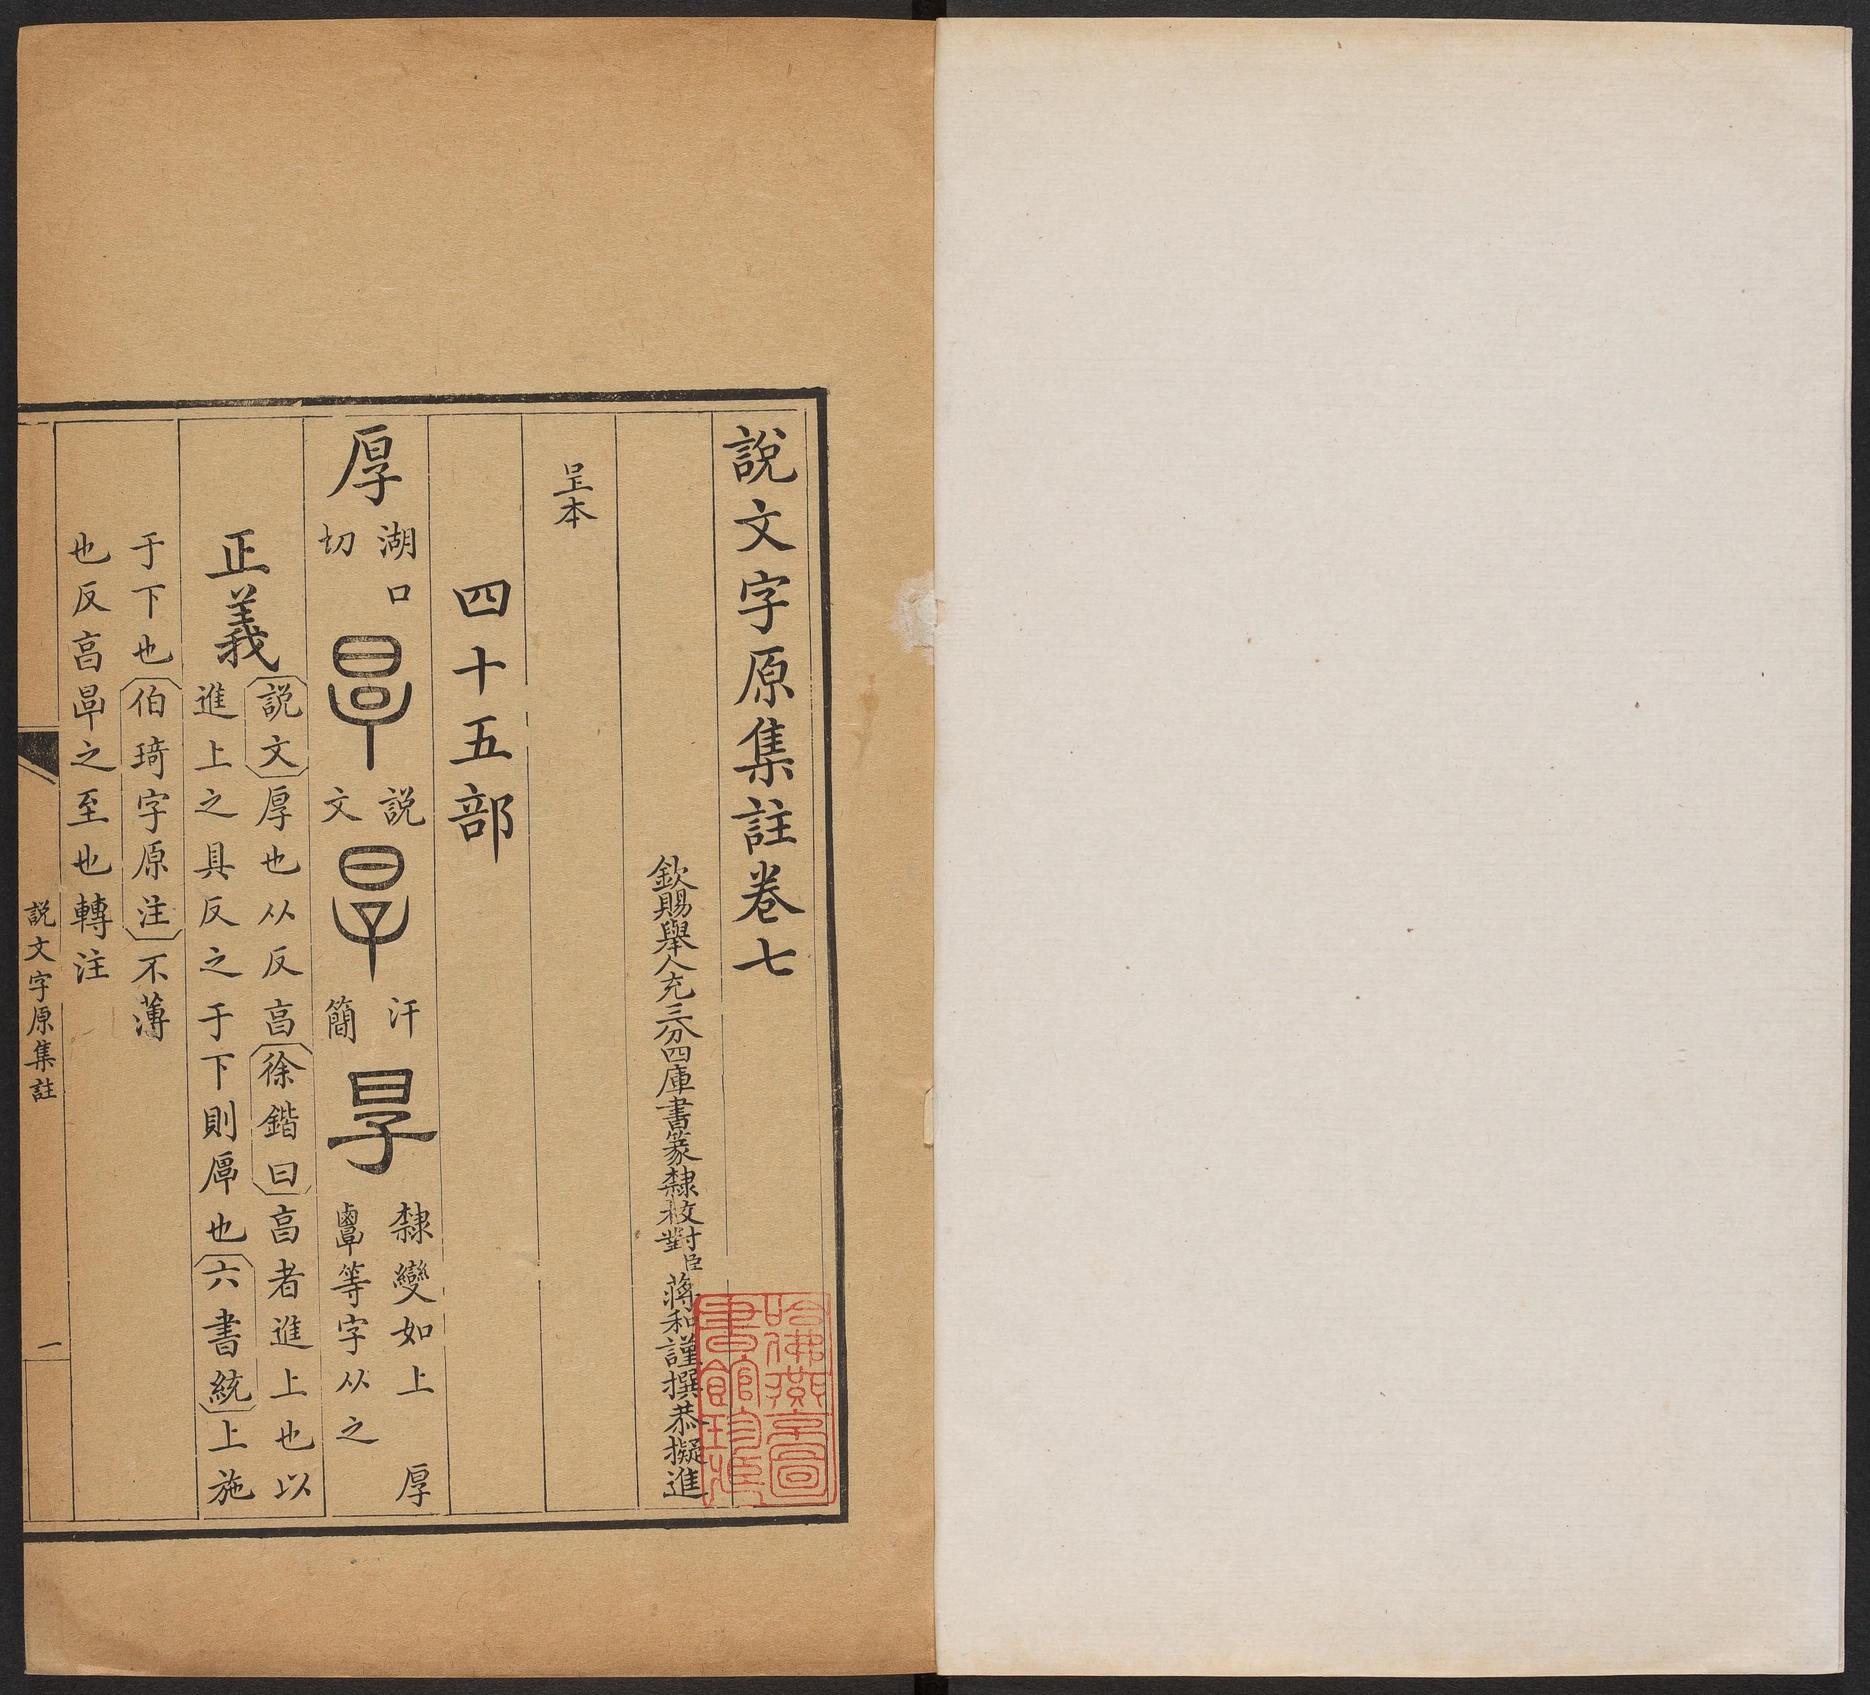 說文字原集註卷七
欽賜舉人充三分四庫書篆隸校對臣蔣和謹撰恭擬進
呈本
四十五部
厚
湖口
切
說
文
汗
簡
隸變如上 厚
𪉷等字从之
正義
說文厚也从反亯徐鍇曰亯者進上也以
進上之具反之于下則厚也六書統上施
于下也伯琦字原注不薄
也反亯㫗之至也轉注
說文字原集註
一
哈佛燕京圖
書館珍藏